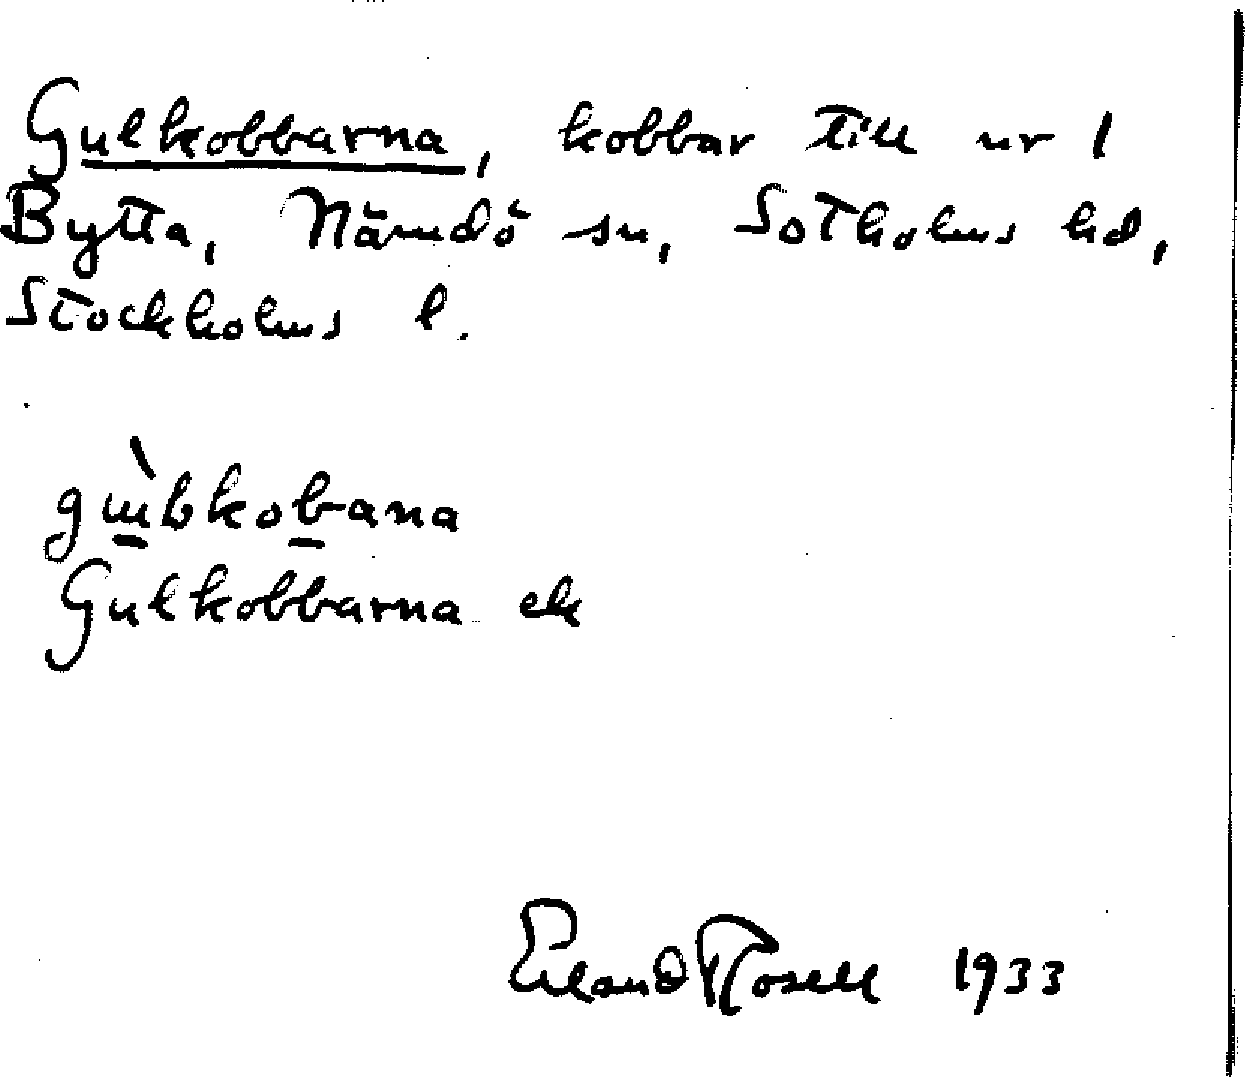 Gulkobbarna, kobbar till nr 1
Bytta, Nämdö sn, Sotholms hd,
Stockholms l.
Gulkobbarna ek
Erland Rosell 1933